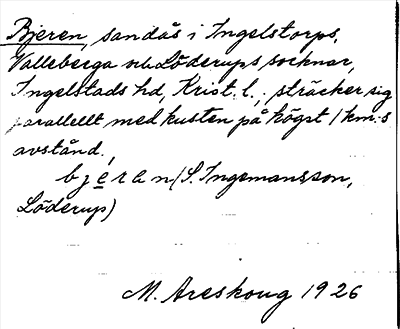 Bjeren, sandås i Ingelstorps,
Valleberga och Löderups socknar,
Ingelstads hd, Krist. l., sträcker sig
parallellt med kusten på högst 1 km:s
avstånd.
bjeran (S. Ingemansson,
Löderup)
M. Areskoug 1926